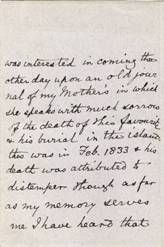 was interested in coming the
other day upon an old jour
nal of my Mother's in which
she speaks with much sorrow
of the death of this favourite
& his burial in the island
this was in Feb. 1833 & his
death was attributed to
distemper though as far
as my memory serves
me I have heard that